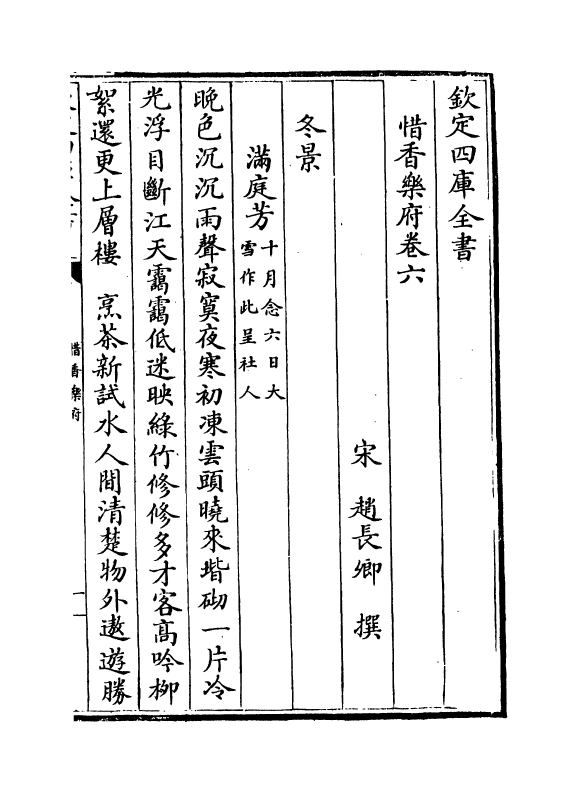 欽定四庫全書
惜香樂府卷六
宋 趙長卿 撰
冬景
滿庭芳十月念六日大
雪作此呈社人
晚色沉沉雨聲寂寞夜寒初凍雲頭曉來堦砌一片冷
光浮目斷江天靄靄低迷映綠竹修修多才客高吟柳
絮還更上層樓 烹茶新試水人間清楚物外遨遊勝
惜香樂府
一